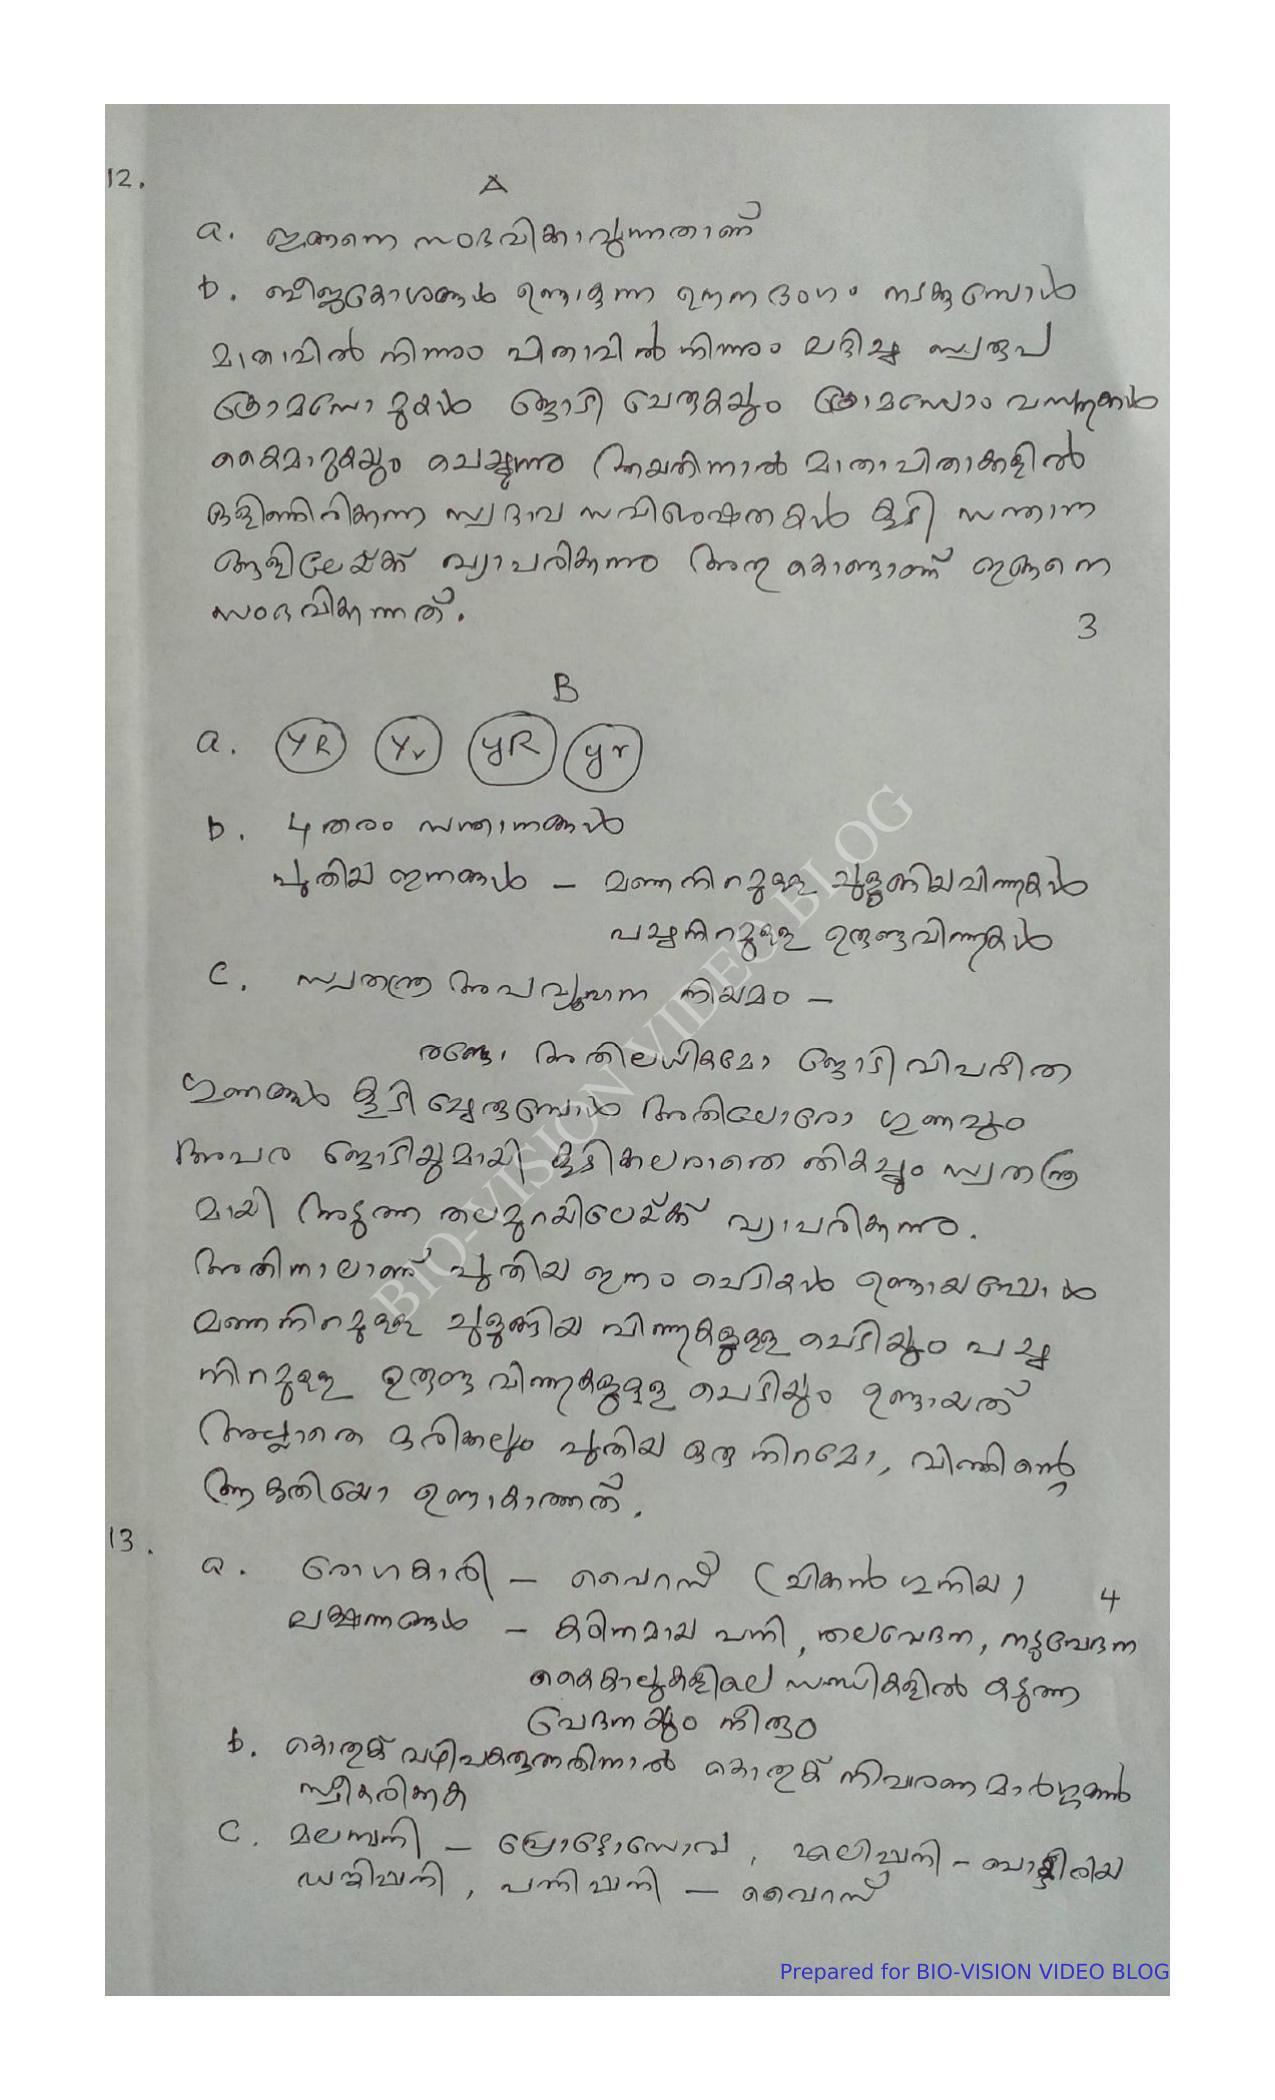 12.
A
a. ഇങ്ങനെ സംഭവിക്കാവുന്നതാണ്
b. ബീജകോശങ്ങൾ ഉണ്ടാകുന്ന ഊനഭംഗം നടക്കുമ്പോൾ
മാതാവിൽ നിന്നും പിതാവിൽ നിന്നും ലഭിച്ച സ്വരൂപ
ക്രോമസോമുകൾ ജോടി ചേരുകയും ക്രോമസോം
കൈമാറുകയും ചെയ്യുന്നു ആയതിനാൽ മാതാപിതാക്കളിൽ
ഒളിഞ്ഞിരിക്കുന്ന സ്വഭാവ സവിശേഷതകൾ കൂടി സന്താന
ങ്ങളിലേയ്ക്ക് വ്യാപരിക്കുന്നു അതു കൊണ്ടാണ് ഇങ്ങനെ
സംഭവിക്കുന്നത്.
3
B
a. YR Yr yR yr
b. 4 തരം സന്താനങ്ങൾ
പുതിയ ഇനങ്ങൾ – മഞ്ഞനിറമുള്ള ചുളുങ്ങിയവിത്തുകൾ
പച്ചനിറമുള്ള ഉരുണ്ടവിത്തുകൾ
c. സ്വതന്ത്ര അപവ്യൂഹന നിയമം –
രണ്ടോ അതിലധികമോ ജോടി വിപരീത
ഗുണങ്ങൾ കൂടി ചേരുമ്പോൾ അതിലോരോ ഗുണവും
അപര ജോടിയുമായി കൂടിക്കലരാതെ തികച്ചും സ്വതന്ത്ര
മായി അടുത്ത തലമുറയിലേയ്ക്ക് വ്യാപരിക്കുന്നു.
അതിനാലാണ് പുതിയ ഇനം ചെടികൾ ഉണ്ടായപ്പോൾ
മഞ്ഞനിറമുള്ള ചുളുങ്ങിയ വിത്തുകളുള്ള ചെടിയും പച്ച
നിറമുള്ള ഉരുണ്ട വിത്തുകളുള്ള ചെടിയും ഉണ്ടായത്
അല്ലാതെ ഒരിക്കലും പുതിയ ഒരു നിറമോ, വിത്തിന്റെ
ആകൃതിയോ ഉണ്ടാകാത്തത്.
13.
a. രോഗകാരി – വൈറസ് (ചിക്കൻ ഗുനിയ)
4
ലക്ഷണങ്ങൾ – കഠിനമായ പനി, തലവേദന, നടുവേദന
കൈകാലുകളിലെ സന്ധികളിൽ കടുത്ത
വേദനയും നീരും
b. കൊതുക് വഴിപകരുന്നതിനാൽ കൊതുക് നിവാരണ മാർഗ്ഗങ്ങൾ
സ്വീകരിക്കുക
c. മലമ്പനി – പ്രോട്ടോസോവ, എലിപ്പനി – ബാക്ടീരിയ
ഡങ്കിപ്പനി, പന്നിപ്പനി – വൈറസ്
BIO-VISION VIDEO BLOG
Prepared for BIO-VISION VIDEO BLOG